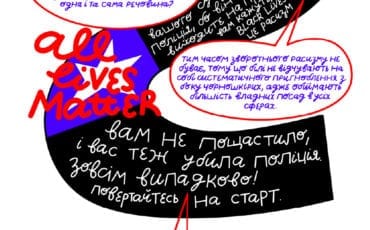 одна і та сама речовина?
вашого
поліція,
виходить на
вам кажуть
Black Lives
це расизм
Тим часом зворотнього расизму не
буває, тому що білі не відчувають на
собі систематичного пригноблення з
боку чорношкірих, адже обіймають
більшість владних посад в усіх
сферах.
All
Lives
Matter
Вам не пощастило,
і вас теж убила поліція.
Зовсім випадково!
Повертайтесь на старт.